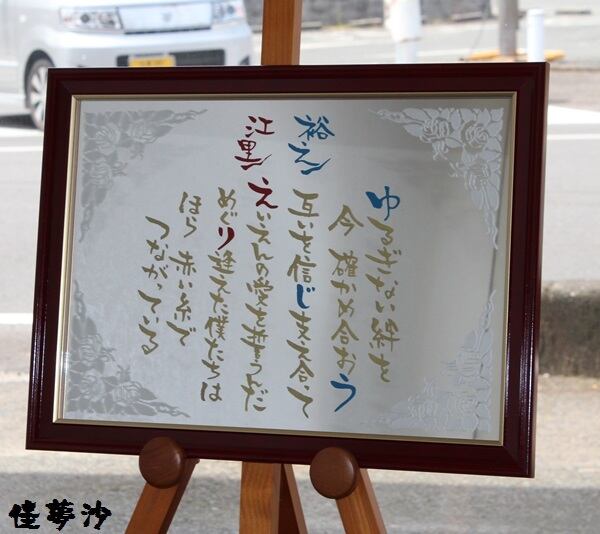 ゆるぎない絆を
今 確かめ合おう
裕
互いを信じ支え合って
江里
えいえんの愛を誓うんだ
めぐり逢えた僕たちは
ほら 赤い糸で
つながっている
佳夢沙